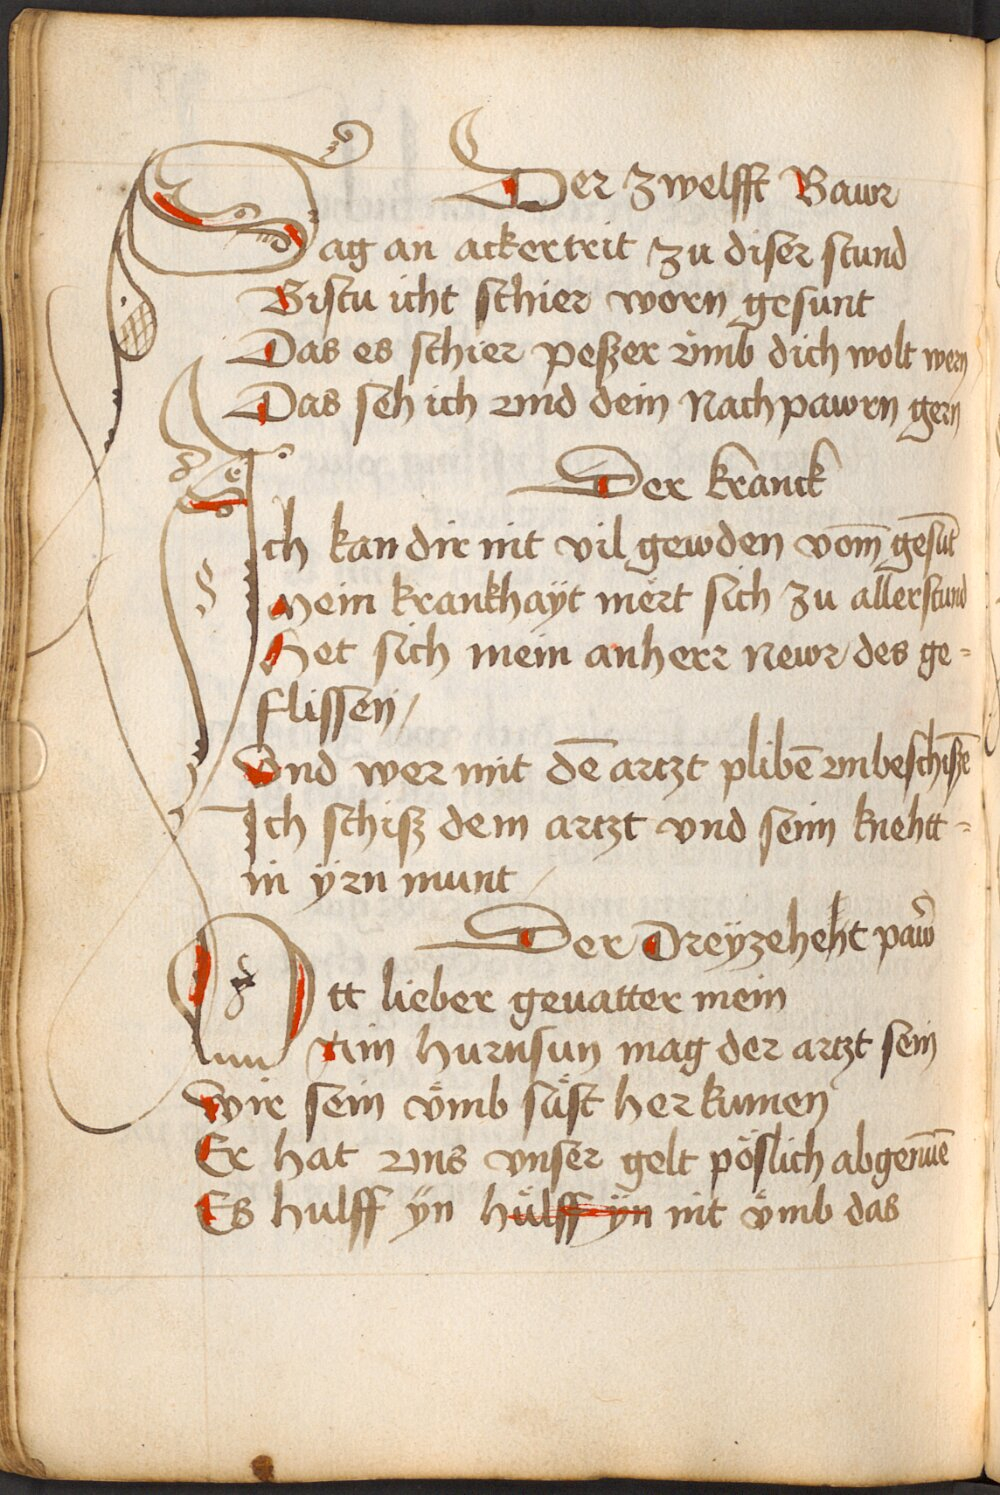 Der zwelfft Bawr
Sag an ackertrit zu diser stund
Bistu icht schier worn gesunt
Das es schier peßer vmb dich wolt wern
Das seh ich vnd dein Nachpawrn gern
Der kranck
Ich kan dir nit vil gewden vom̄ gesūt
Mein krankhaÿt mert sich zu aller stund
Het sich mein anherr Newr des ge=
flissen /
Vnd wer mit dē artzt plibē vnbeschißē
Ich schiß dem artzt vnd seim knehtt=
in ÿrn munt
Der Dreÿzeheht paẘ
Ott lieber geuatter mein
Ein hurnsun mag der artzt sein
Wir sein vmb sust her kumen
Er hat vns vnser gelt pöslich abgenūē
Es hulff ÿn hulff ÿn nit vmb das